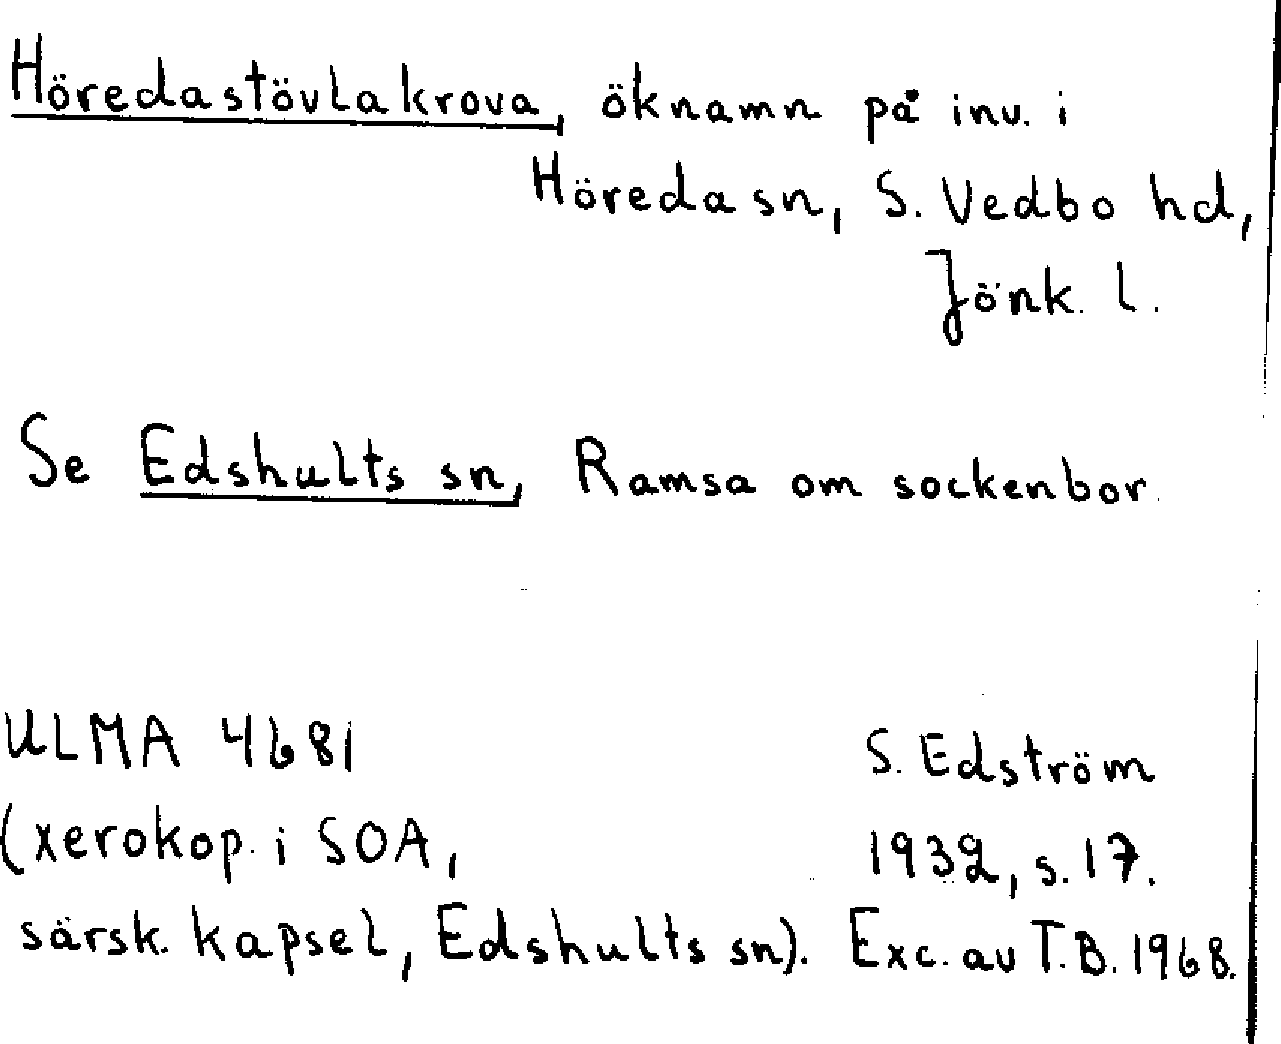 Höredastövlakrova, öknamn på inv. i
Höreda sn, S. Vedbo hd,
Jönk. l.
Se Edshults sn, Ramsa om sockenbor.
ULMA 4681
S. Edström
(xerokop. i SOA,
1932, s. 17.
särsk. kapsel, Edshults sn). Exc. av T.B. 1968.